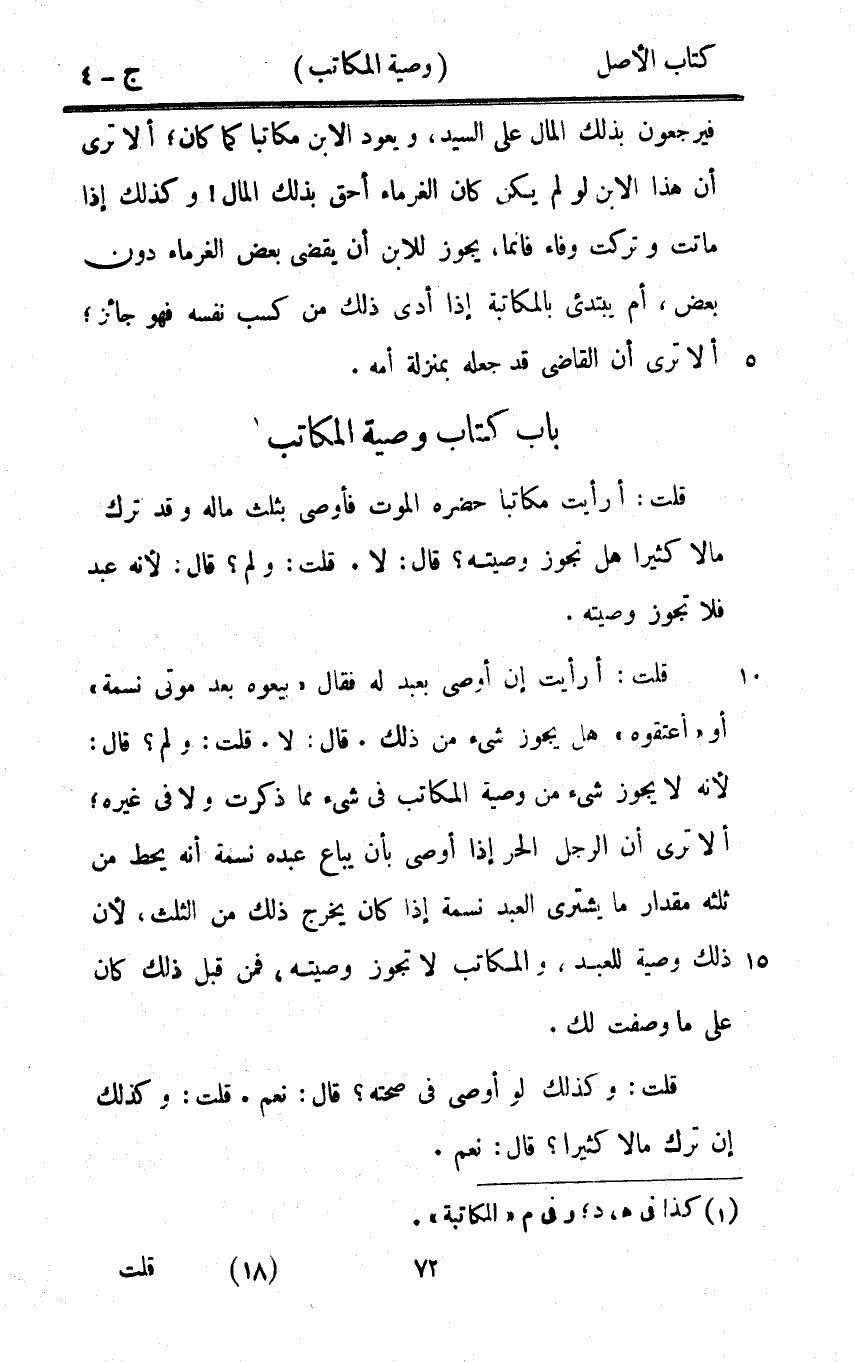 كتاب الأصل (وصية المكاتب) ج - ٤
فيرجعون بذلك المال على السيد، و يعود الابن مكاتبا كما كان؛ ألا ترى
أن هذا الابن لو لم يكن كان الغرماء أحق بذلك المال! و كذلك إذا
ماتت و تركت وفاء فانما، يجوز للابن أن يقضى بعض الغرماء دون
بعض، أم يبتدئ بالمكاتبة إذا أدى ذلك من كسب نفسه فهو جائز؛
٥ ألا ترى أن القاضى قد جعله بمنزلة أمه.
باب كتاب وصية المكاتب ١
قلت: أ رأيت مكاتبا حضره الموت فأوصى بثلث ماله و قد ترك
مالا كثيرا هل تجوز وصيته؟ قال: لا. قلت: و لم؟ قال: لأنه عبد
فلا تجوز وصيته.
١٠ قلت: أ رأيت إن أوصى بعبد له فقال «بيعوه بعد موتى نسمة»
أو «أعتقوه» هل يجوز شىء من ذلك. قال: لا. قلت: و لم؟ قال:
لأنه لا يجوز شىء من وصية المكاتب فى شىء مما ذكرت و لا فى غيره؛
ألا ترى أن الرجل الحر إذا أوصى بأن يباع عبده نسمة أنه يحط من
ثلثه مقدار ما يشترى العبد نسمة إذا كان يخرج ذلك من الثلث، لأن
١٥ ذلك وصية للعبد، و المكاتب لا تجوز وصيته، فمن قبل ذلك كان
على ما وصفت لك.
قلت: و كذلك لو أوصى فى صحته؟ قال: نعم. قلت: و كذلك
إن ترك مالا كثيرا؟ قال: نعم.
(١) كذا فى ه، د؛ و فى م «المكاتبة».
٧٢ (١٨) قلت